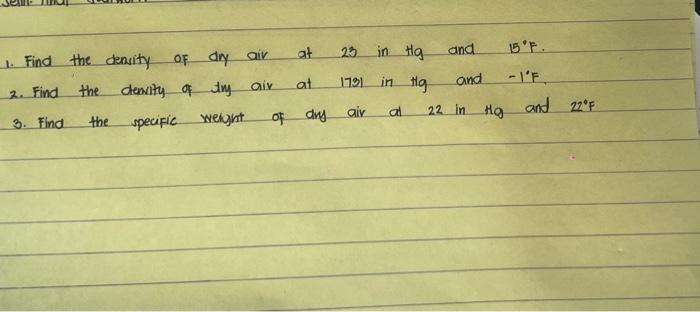 1. Find the density of dry air at 23 in Hg and 15°F.
2. Find the density of dry air at in Hg and -1°F.
3. Find the specific weight of dry air at 22 in Hg and 22°F